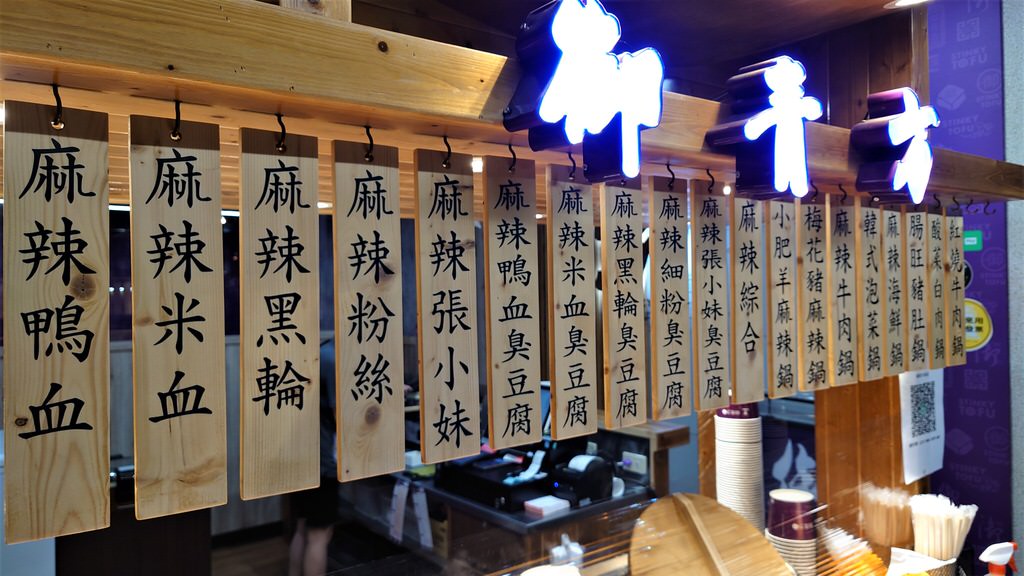 麻辣鴨血
麻辣米血
麻辣黑輪
麻辣粉絲
麻辣張小妹
麻辣鴨血臭豆腐
麻辣米血臭豆腐
麻辣黑輪臭豆腐
麻辣細粉臭豆腐
麻辣張小妹臭豆腐
麻辣綜合
小肥羊麻辣鍋
梅花豬麻辣鍋
麻辣牛肉鍋
韓式泡菜鍋
麻辣海鮮鍋
腸旺豬肚鍋
酸菜白肉鍋
紅燒牛肉鍋
STINKY
TOFU